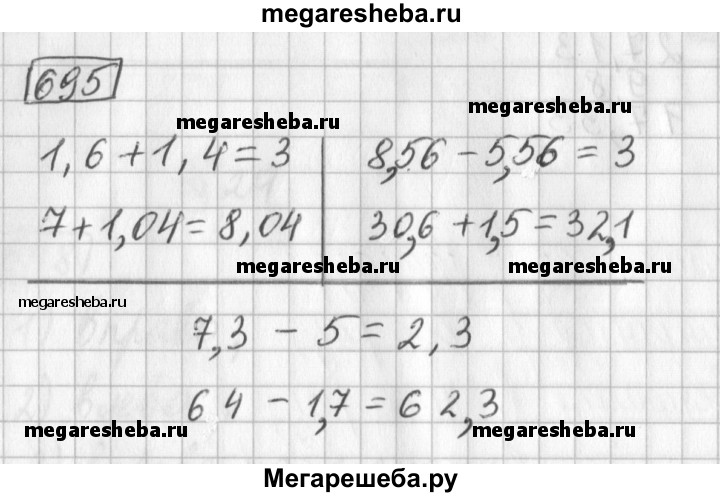 megaresheba.ru
695
megaresheba.ru
megaresheba.ru
1,6 + 1,4 = 3
8,56 - 5,56 = 3
7 + 1,04 = 8,04
30,6 + 1,5 = 32,1
megaresheba.ru
megaresheba.ru
megaresheba.ru
7,3 - 5 = 2,3
64 - 1,7 = 62,3
megaresheba.ru
megaresheba.ru
Мегарешеба.ру